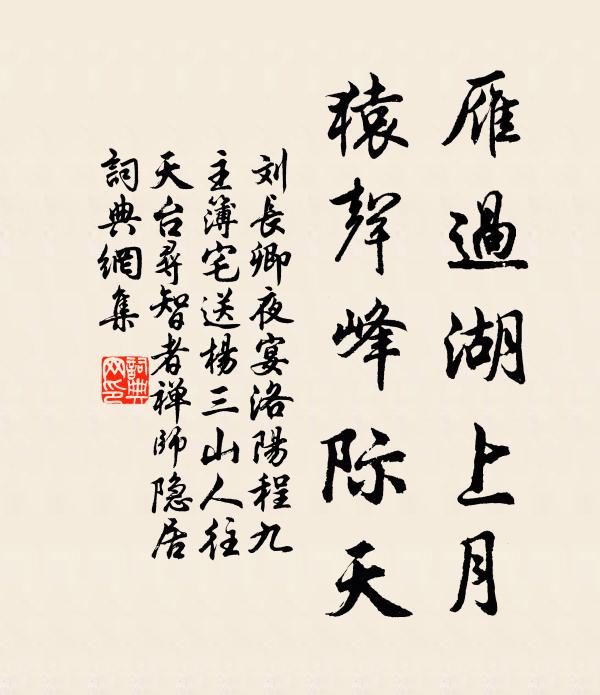 雁過湖上月
猿聲峰际天
刘長卿夜宴洛陽程九
主簿宅送楊三山人往
天台尋智者禅師隐居
詞典網集
詞典
网印